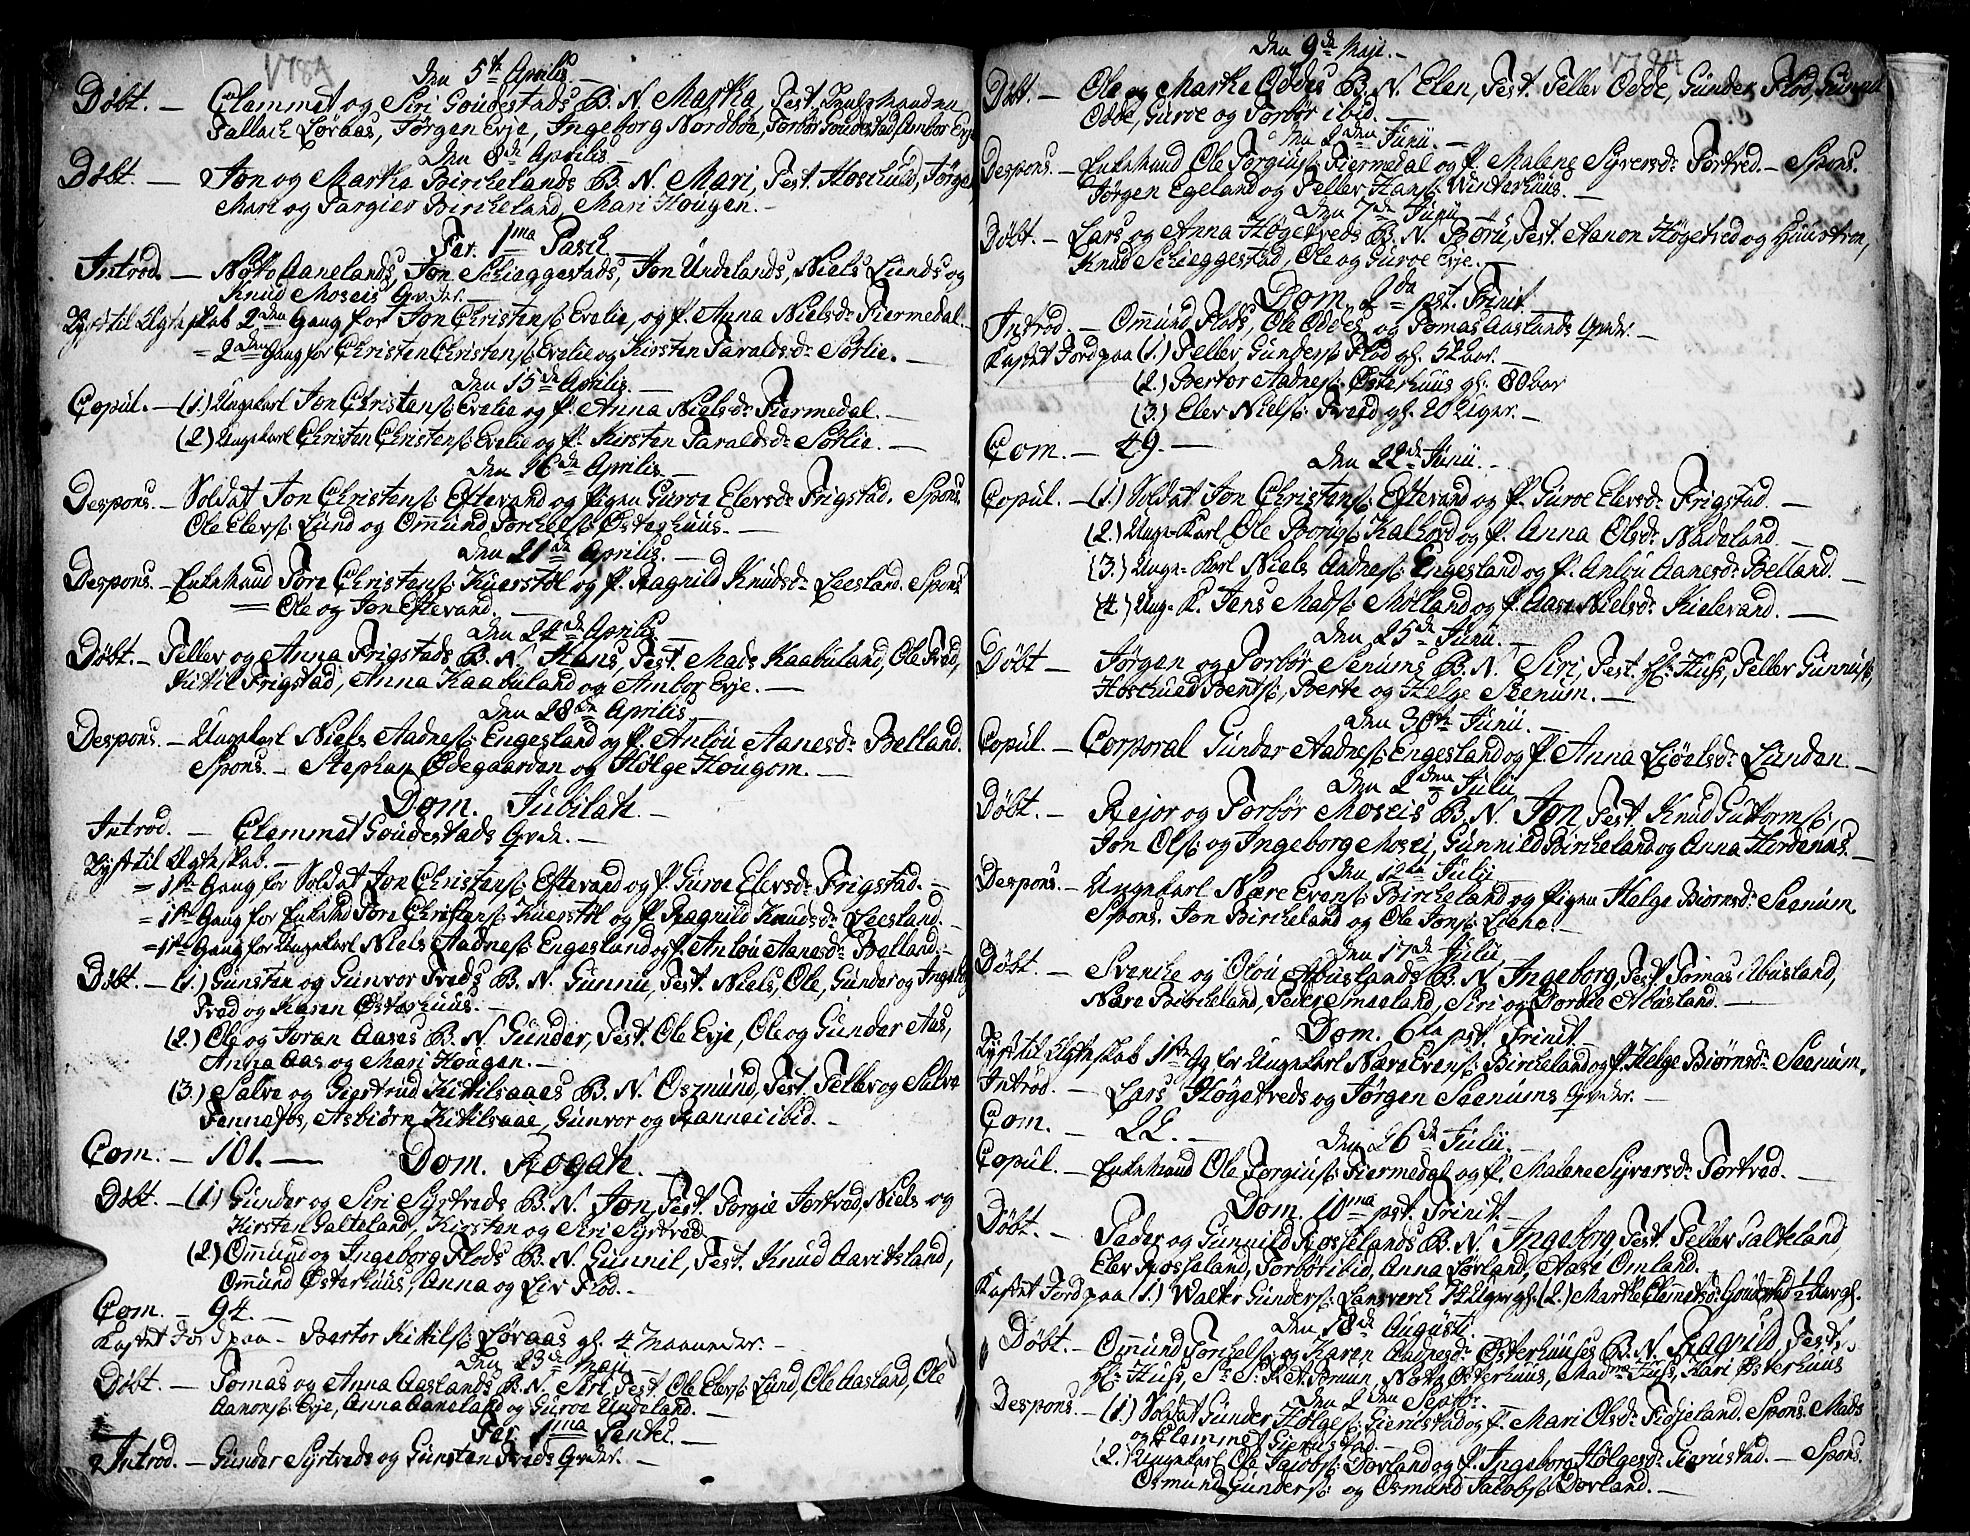 1784
den 5te Aprilis.
Døbt. — Clemmet og Siri Goudestads B. N. Martha, Test. Lensmanden
Tallach Løraas, Jørgen Evje, Ingeborg Nordbøe, Torbør Goudestad, Ambor Evje
den 8de Aprilis.
Døbt. — Jon og Martha Birchelands B. N. Mari, Test. Hoschuld, Jørgen
Mari og Targier Bircheland, Mari Hougen. —
Fer. 1ma Pasch.
Introd. — Aanelands, Jon Schieggestads, Jon Undelands, Niels Lunds og
Knud Moseis Qvder. —
Lyst til Egteskab 2den Gang for Jon Christens: Evelie, og P. Anna Nielsd: Fiermedal. —
= 2den Gang for Christen Christens: Evelie og Kirsten Taraldsd: Sørlie. —
den 15de Aprilis. —
Copul. — (1.) Ungekarl Jon Christens: Evelie og P. Anna Nielsd: Fiermedal. —
(2.) Ungekarl Christen Christens: Evelie og P. Kirsten Taraldsd: Sørlie. —
den 16de Aprilis. —
Despons. — Soldat Jon Christens: Eftevand og Pigen Guroe Elevsd: Frigstad. Spons.
Ole Elevs: Lund og Omund Torchels: Østerhuus. —
den 21de Aprilis. —
Despons. — Enkemand Tore Christens: Kuerstøl og P. Ragnild Knudsd: Leesland. Spons.
Ole og Jon Eftevand. —
den 24de Aprilis. —
Døbt. — Tellev og Anna Frigstads B. N. Hans, Test. Mads Kaabuland, Ole Fred,
Kittil Frigstad, Anna Kaabuland og Ambor Evje. —
den 28de Aprilis
Despons. — Ungekarl Niels Aadnes: Engesland og P. Anlou Aanesd: Belland.
Spons. — Stephan Ødegaarden og Hølge Hougom. —
Dom. Jubilate. —
Introd. — Clemmet Goudestads Qvde. —
Lyst til Egteskab. —
= 1ste Gang for Soldat Jon Christens: Eftevand og P. Guroe Elevsd: Frigstad. —
= 1ste Gang for Enkemd Tore Christens: Kuerstøl og P. Ragnild Knudsd: Leesland. —
= 1ste Gang for Ungekarl Niels Aadnes: Engesland og P. Anlou Aanesd: Belland. —
Døbt. — (1.) Gunsten og Gunvor Freds B. N. Gunnu, Test. Niels, Ole, Gunder og Ingeborg
Fred og Karen Østerhuus. —
(2.) Ole og Joran Aases B. N. Gunder, Test. Ole Evje, Ole og Gunder Aas,
Anna Aas og Mari Hougen. —
(3.) Salve og Giertrud Kittilsaaes B. N. Osmund, Test. Tellev og Salve
Fennefos, Asbiørn Kittilsaae, Gunvor og Hannæ ibid. —
Com. — 101. — Dom. Rogate. —
Døbt. — (1.) Gunder og Siri Syrtveds B. N. Jon, Test. Torgie Tortved, Niels og
Kirsten Galteland, Kirsten og Siri Syrtved.
(2.) Omund og Ingeborg Flods B. N. Gunnil, Test. Knud Aavitsland,
Omund Østerhuus, Anna og Liv Flod. —
Com. — 94. —
Kastet Jord paa — Bertor Kittils: Løraas gl. 4 Maaneder. —
den 23de Maji —
Døbt. — Tomas og Anna Aaslands B. N. Siri, Test. Ole Elevs: Lund, Ole Aasland, Ole
Aanons: Evje, Anna Aaneland og Guroe Undeland. —
Fer. 1ma Pentec. —
Introd. — Gunder Syrtveds og Gunsten Freds Qvder. —
1784
den 9de Maji. —
Døbt. — Ole og Marthe Oddes B. N. Elen, Test. Tellev Odde, Gunder Flod, Gunnil
Odde, Guroe og Torbør ibid. —
den 2den Junii. —
Despons. — Enkemand Ole Torgius: Fiermedal og P. Malene Syversd: Tortved. — Spons.
Jørgen Egeland og Tellev Hans: Winterhuus. —
den 7de Junii —
Døbt. — Lars og Anna Høgetveds B. N. Børu, Test. Aanon Høgetved og Huustron,
Knud Schieggestad, Ole og Guroe Evje. —
Dom. 2da pst. Trinit.
Introd. — Omund Flods, Ole Oddes og Tomas Aaslands Qvder. —
Kastet Jord paa (1.) Tellev Gunders: Flod gl. 52 aar. —
(2.) Bertor Aadnes: Østerhuus gl. 80 aar
(3.) Elev Niels: Fred gl. 20 Uger. —
Com. — 49. —
den 22de Junii. —
Copul. — (1.) Soldat Jon Christens: Eftevand og P. Guroe Elevsd: Frigstad. —
(2.) Unge-Karl Ole Børus: Kalhovd og P. Anna Olsd: Nadeland. —
(3.) Unge-Karl Niels Aadnes: Engesland og P. Anlou Aanesd: Belland. —
(4.) Ung-K. Jens Mads: Mølland og P. Aase Nielsd: Kielevand. —
den 25de Junii. —
Døbt — Jørgen og Torbør Senums B. N. Siri, Test. Hr: Huss, Tellev Gunnus:,
Hoschued Bents:, Berte og Helge Seenum. —
den 30te Junii. —
Copul. — Corporal Gunder Aadnes: Engesland og P. Anna Liøelsd: Lunden. —
den 2den Julii
Døbt. — Rejor og Torbør Moseis B. N. Jon, Test. Knud Guttorms:,
Jon Ols: og Ingeborg Mosei, Gunnild Bircheland og Anna Hordenes. —
den 12te Julii —
Despons. — Ungekarl Nære Evens: Bircheland og Pigen Helge Biørnsd: Seenum.
Spons. Jon Bircheland og Ole Jons: Liene. —
den 17de Julii
Døbt. — Svenche og Olou Abuslands B. N. Ingeborg, Test. Tomas Abusland,
Nære Bircheland, Peder Smeeland, Siri og Dordie Abusland. —
Dom. 6ta pst. Trinit. —
Lyst til Egteskab 1ste Gg. for Ungekarl Nære Evens: Bircheland og P. Helge Biørnsd: Seenum.
Introd. — Lars Høgetveds og Jørgen Seenums Qvder. —
Com. — 22. —
den 26de Julii. —
Copul. — Enkemand Ole Torgius: Fiermedal og P. Malene Syversd: Tortved. —
Dom. 10ma pst. Trinit. —
Døbt. — Peder og Gunnild Røsselands B. N. Ingeborg, Test. Tellev Galteland,
Elev Røsseland, Torbør ibid, Anna Lørland, Aase Omland.
Kastet Jord paa (1.) Walter Gunders: Lansverk 14 Uger gl. (2.) Marthe Clemetsd: Goudestad ½ Aar gl.
den 18de Augusti.
Døbt. — Omund Torchels: og Karen Aadnesd: Østerhuuses B. N. Ragnild, Test.
Hr: Huss, Østerhuus, Madme Huss, Kari Østerhuus
den 2den Septbr.
Despons. — (1.) Soldat Gunder Hølges: Gierustad og P. Mari Olsd: Fiøjeland, Spons. Mads
og Clemmet Gierustad. —
(2.) Ungekarl Ole Jacobs: Dovland og P. Ingeborg Hølgesd: Gierustad. — Spons.
Osmund Gunders: og Osmund Jacobs: Dovland. —